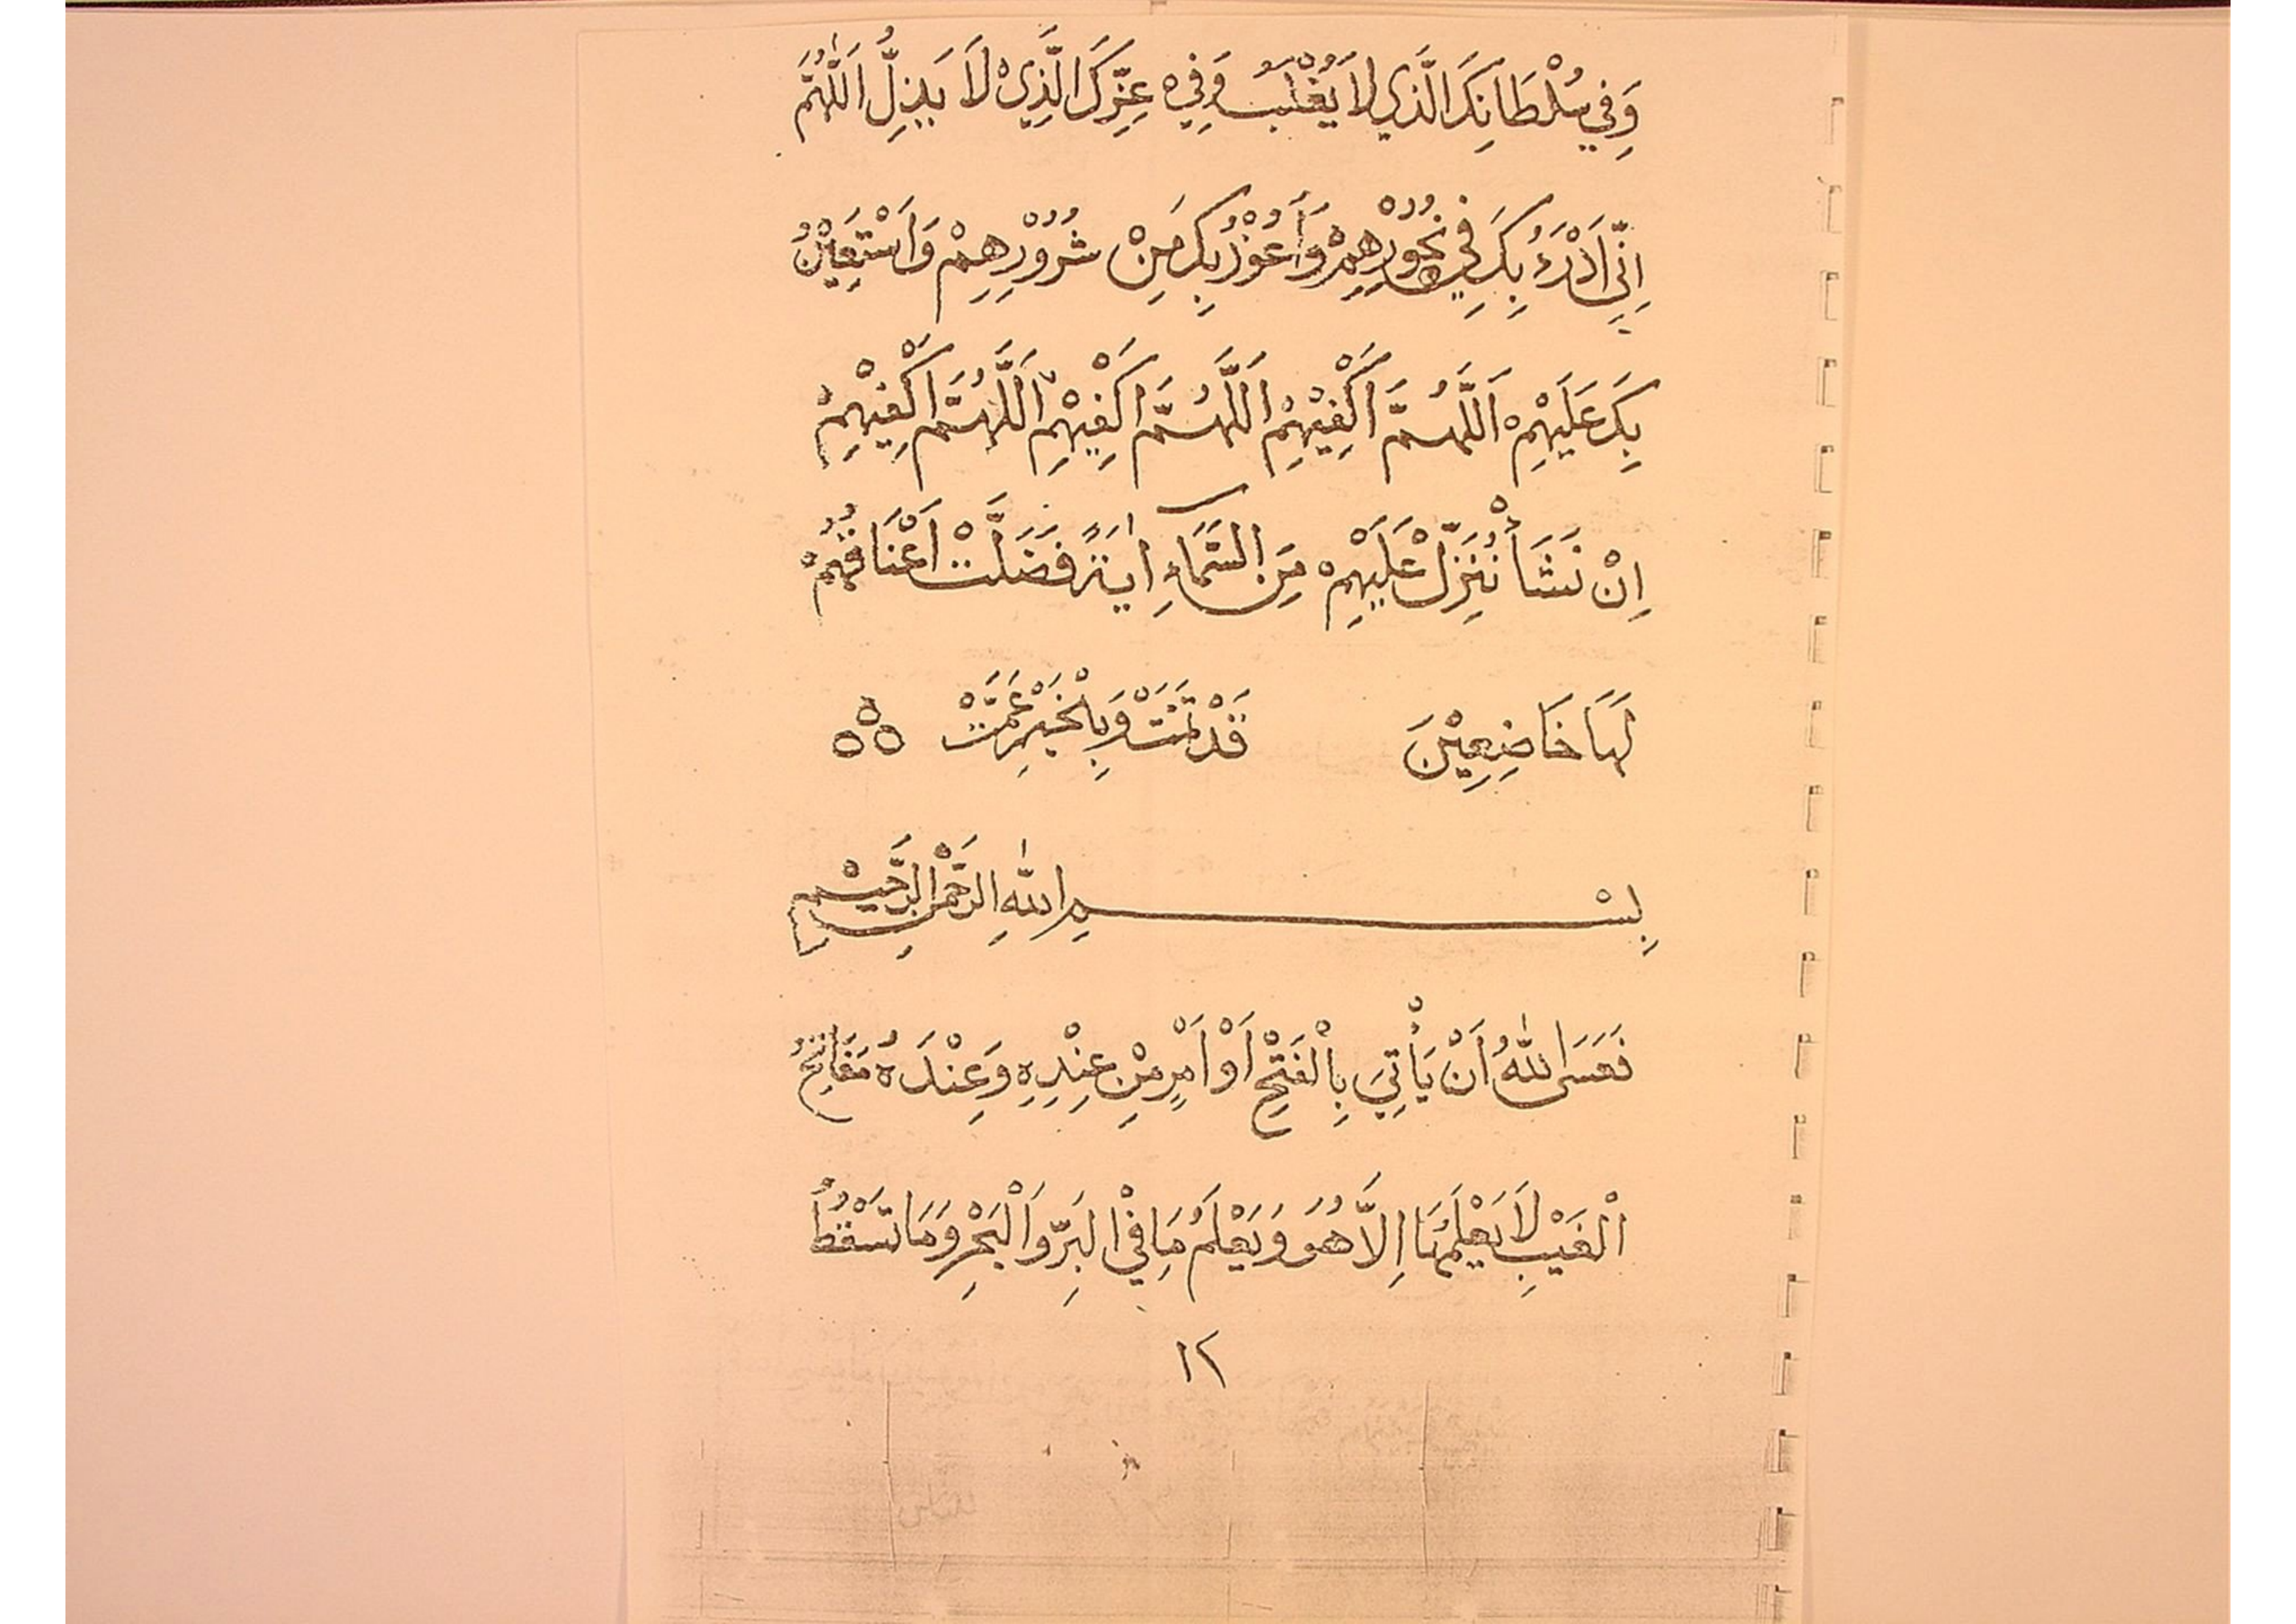 وَفِي سُلْطَانِكَ الَّذِي لَا يُغْلَبُ وَفِيْ عِزِّكَ الَّذِيْ لَا يَذِلُّ اَللّٰهُمَّ
اِنِّيْ اَدْرَءُ بِكَ فِيْ نُحُوْرِهِمْ وَأَعُوْذُ بِكَ مِنْ شُرُوْرِهِمْ وَاَسْتَعِيْنُ
بِكَ عَلَيْهِمْ اَللَّهُمَّ اَكْفِيْهِمْ اَللَّهُمَّ اَكْفِيْهِمْ اَللَّهُمَّ اَكْفِيْهِمْ
اِنْ نَشَأْ نُنَزِّلْ عَلَيْهِمْ مِنَ السَّمَاءِ اٰيَةً فَضَلَّتْ اَعْنَاقُهُمْ
لَهَا خَاضِعِيْنَ قَدْ تَمَّتْ وَبِالْخَيْرِ عَمَّتْ
بِسْمِ اللّٰهِ الرَّحْمٰنِ الرَّحِيْمِ
فَعَسَى اللّٰهُ اَنْ يَأْتِيَ بِالْفَتْحِ اَوْ اَمْرٍ مِنْ عِنْدِهِ وَعِنْدَهُ مَفَاتِحُ
الْغَيْبِ لَا يَعْلَمُهَا اِلَّا هُوَ وَيَعْلَمُ مَا فِي الْبَرِّ وَالْبَحْرِ وَمَا تَسْقُطُ
١٢